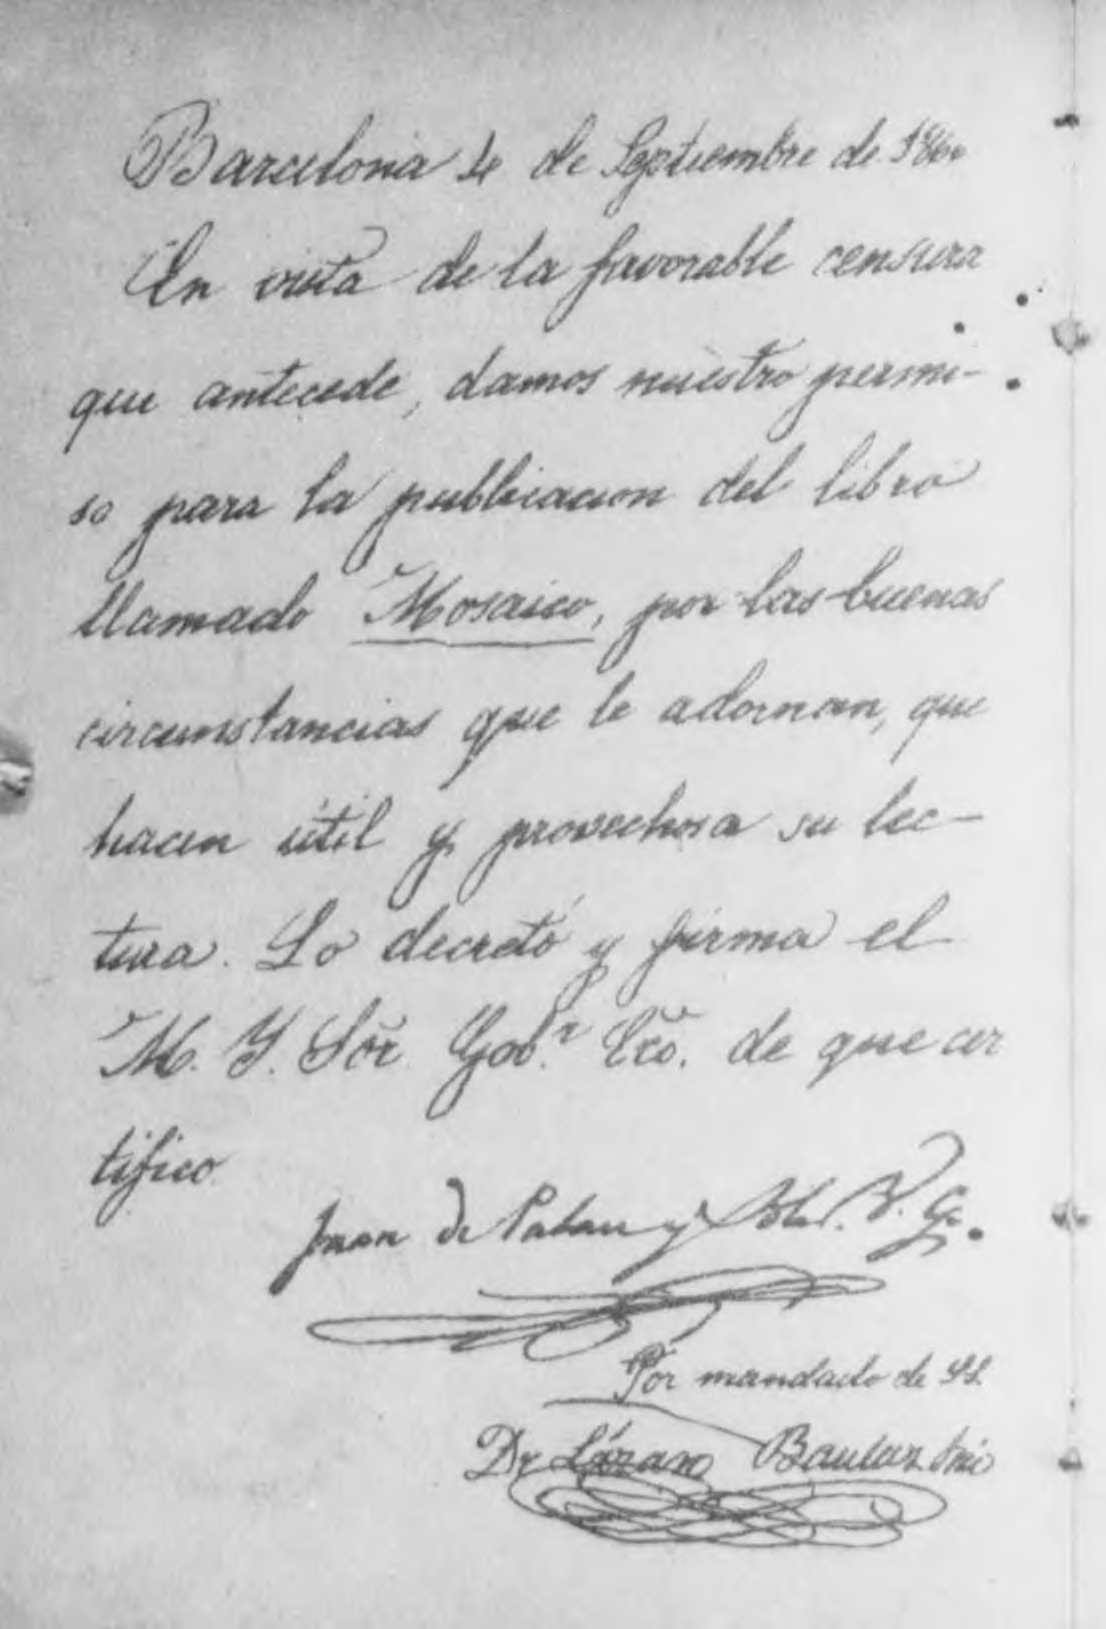 Barcelona 4 de Septiembre de 1860
En vista de la favorable censura
que antecede, damos nuestro permi-
so para la publicacion del libro
llamado Mosaico, por las buenas
circunstancias que le adornan, que
hacen útil y provechosa su lec-
tura. Lo decretó y firma el
M. Y. Sor. Gobr. Ecco. de que cer
tifico
Juan de Palau y Soler. V. G.
Por mandado de SS.
Dr Lázaro Bauluz Srio